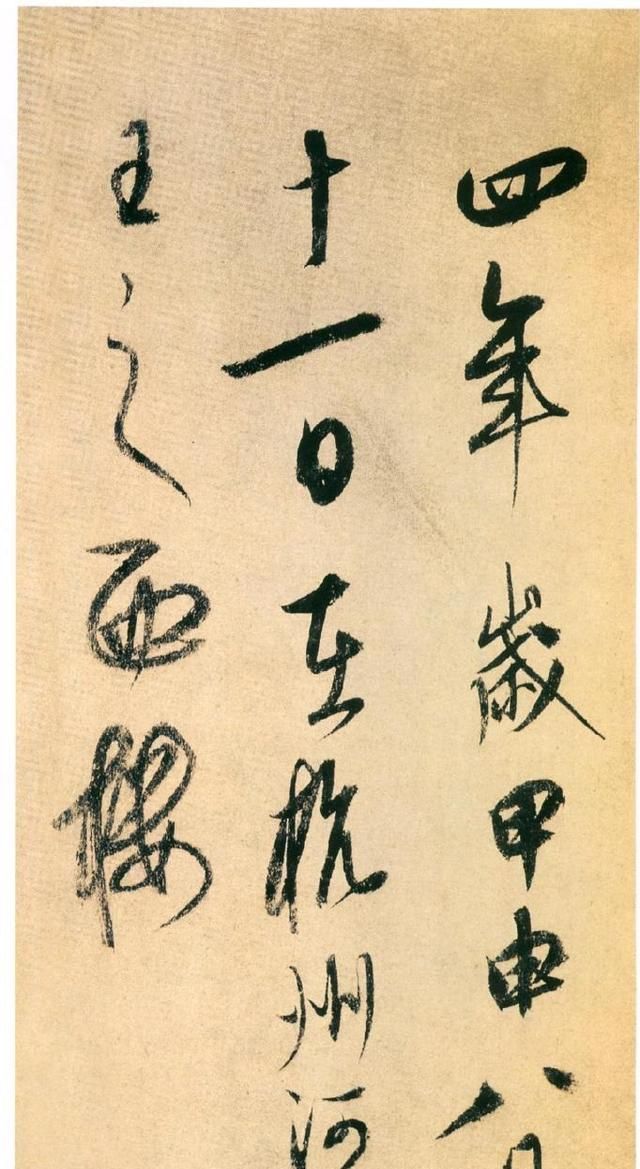 四年歲甲申八
十一日在杭州河
王之西樓